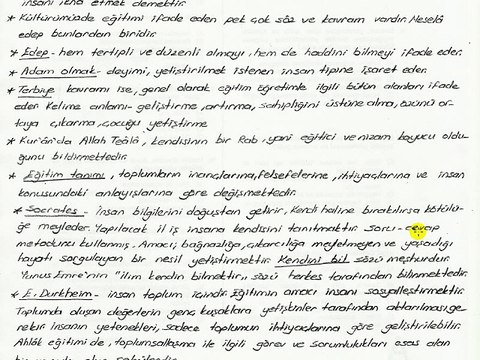 insanı ikna etmek demektir.
* Kültürümüzde eğitimi ifade eden pek çok söz ve kavram vardır. Meselâ
edep bunlardan biridir.
* Edep - hem tertipli ve düzenli olmayı, hem de haddini bilmeyi ifade eder.
* Adam olmak - deyimi, yetiştirilmek istenen insan tipine işaret eder.
* Terbiye kavramı ise, genel olarak eğitim öğretimle ilgili bütün alanları ifade
eder. Kelime anlamı - geliştirme, artırma, sahipliğini üstüne alma, özünü or-
taya çıkarma, çocuğu yetiştirme
* Kur'ân'da Allah Teâlâ, kendisinin bir Rab, yani eğitici ve nizam koyucu oldu-
ğunu bildirmektedir.
* Eğitim tanımı, toplumların inançlarına, felsefelerine, ihtiyaçlarına ve insan
konusundaki anlayışlarına göre değişmektedir.
* Socrates - insan bilgilerini doğuştan getirir, Kendi haline bırakılırsa kötülü-
ğe meyleder. Yapılacak ilk iş insana kendisini tanıtmaktır. Soru - cevap
metodunu kullanmış. Amacı; bağnazlığa, çıkarcılığa meyletmeyen ve yaşadığı
hayatı sorgulayan bir nesil yetiştirmektir. Kendini bil sözü meşhurdur.
Yunus Emre'nin "ilim kendin bilmektir," sözü herkes tarafından bilinmektedir.
* E. Durkheim - insan toplum içindir. Eğitimin amacı insanı sosyalleştirmektir.
Toplumda oluşan değerlerin genç kuşaklara yetişkinler tarafından aktarılması ge-
rekir. insanın yetenekleri, sadece toplumun ihtiyaçlarına göre geliştirilebilir.
Ahlâk eğitimi de, toplumsallaşma ile ilgili görev ve sorumlulukları esas alan